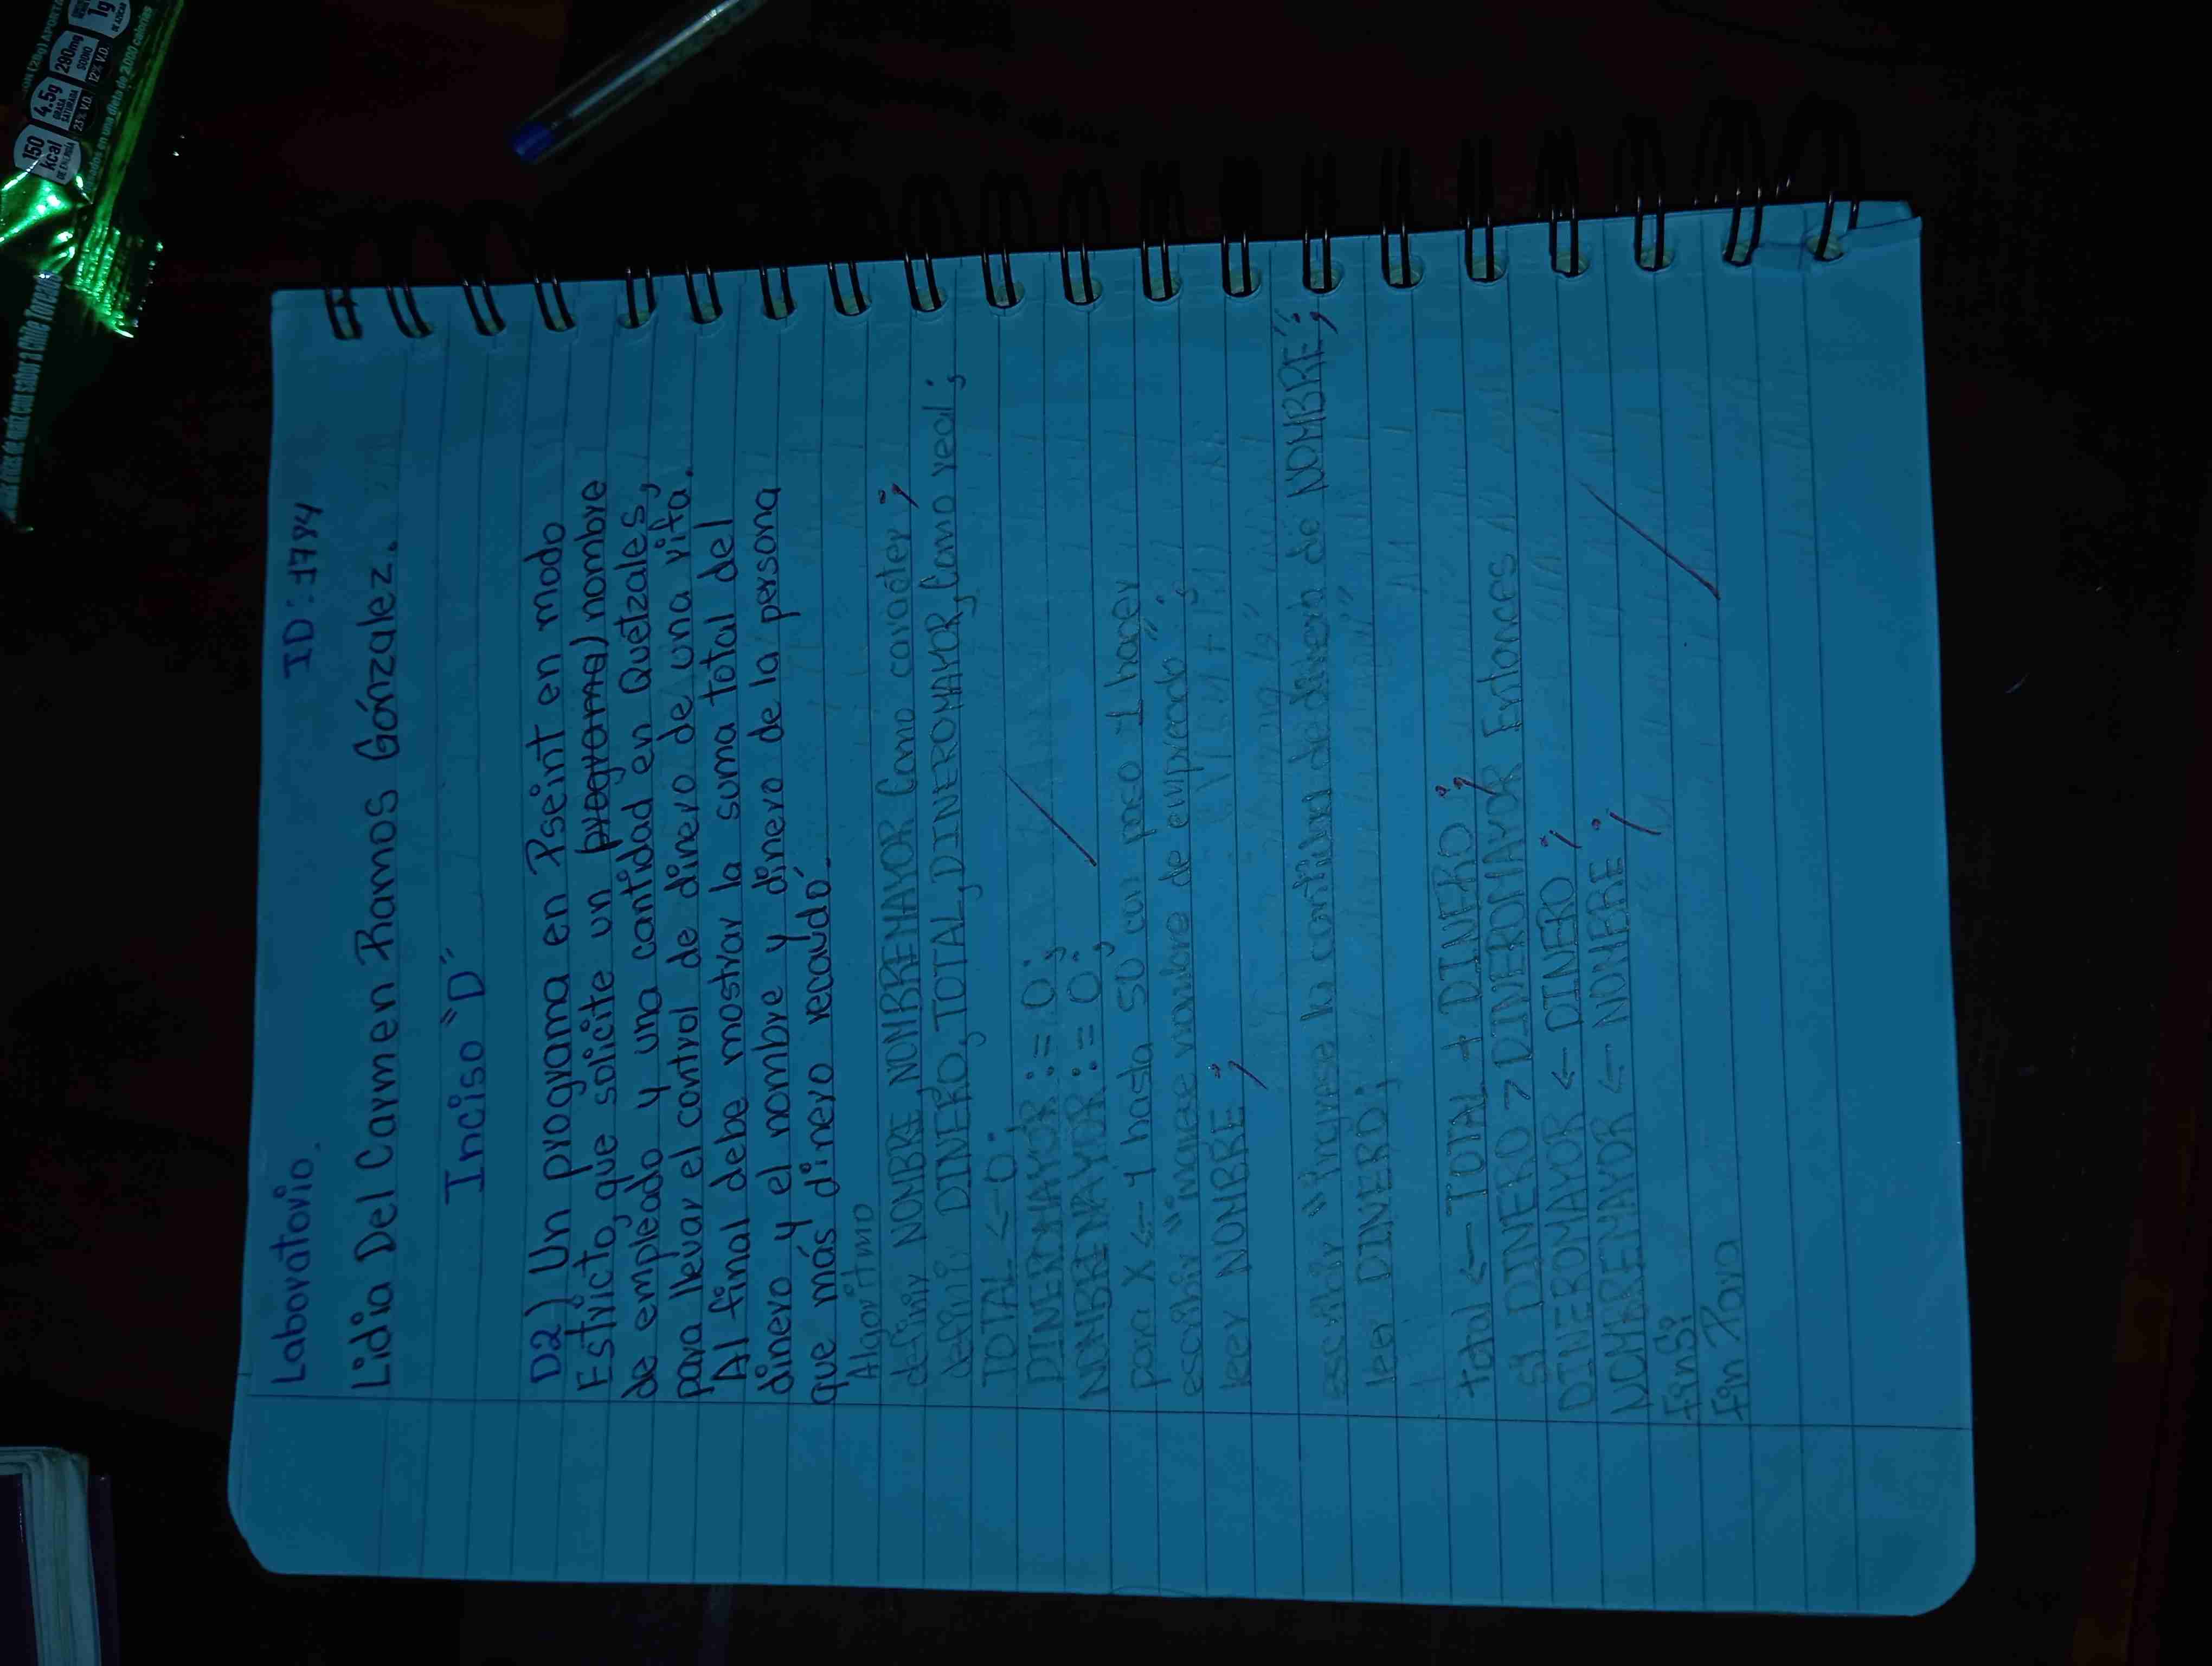 Laboratorio. ID: 1784
Lidia Del Carmen Ramos Gónzalez.
Inciso "D"
D2) Un programa en Pseint en modo
Estricto, que solicite un programa) nombre
de empleado y una cantidad en Quetzales,
para llevar el control de dinero de una rifa.
Al final debe mostrar la suma total del
dinero y el nombre y dinero de la persona
que más dinero recaudó.
Algoritmo
definir NOMBRE, NOMBREMAYOR Como caracter;
definir DINERO, TOTAL, DINEROMAYOR, Como real;
TOTAL <- 0;
DINEROMAYOR := 0;
NOMBREMAYOR := 0;
para X <- 1 hasta 50 con paso 1 hacer
escribir "ingrese nombre de empreado";
leer NOMBRE;
escribir "Ingrese la cantidad de dinero de NOMBRE";
leer DINERO;
total <- TOTAL + DINERO;
si DINERO > DINEROMAYOR Entonces
DINEROMAYOR <- DINERO;
NOMBREMAYOR <- NOMBRE;
FinSi
Fin Para
150 kcal DE ENERGÍA
4.5g GRASA SATURADA 23% V.D.
280mg SODIO 12% V.D.
1g
basados en una dieta de 2,000 calorías
de maíz con sabor a Chile Toreado